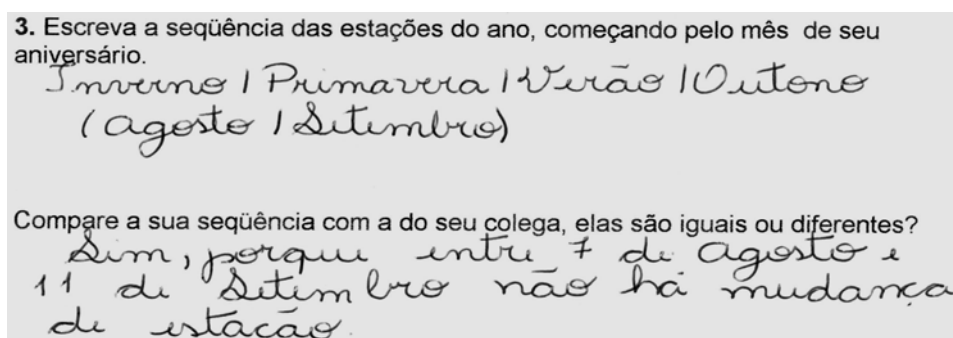 3. Escreva a seqüência das estações do ano, começando pelo mês de seu
aniversário.
Inverno / Primavera / Verão / Outono
(agosto / Setembro)
Compare a sua seqüência com a do seu colega, elas são iguais ou diferentes?
Sim, porque entre 7 de agosto e
11 de Setembro não há mudança
de estação.